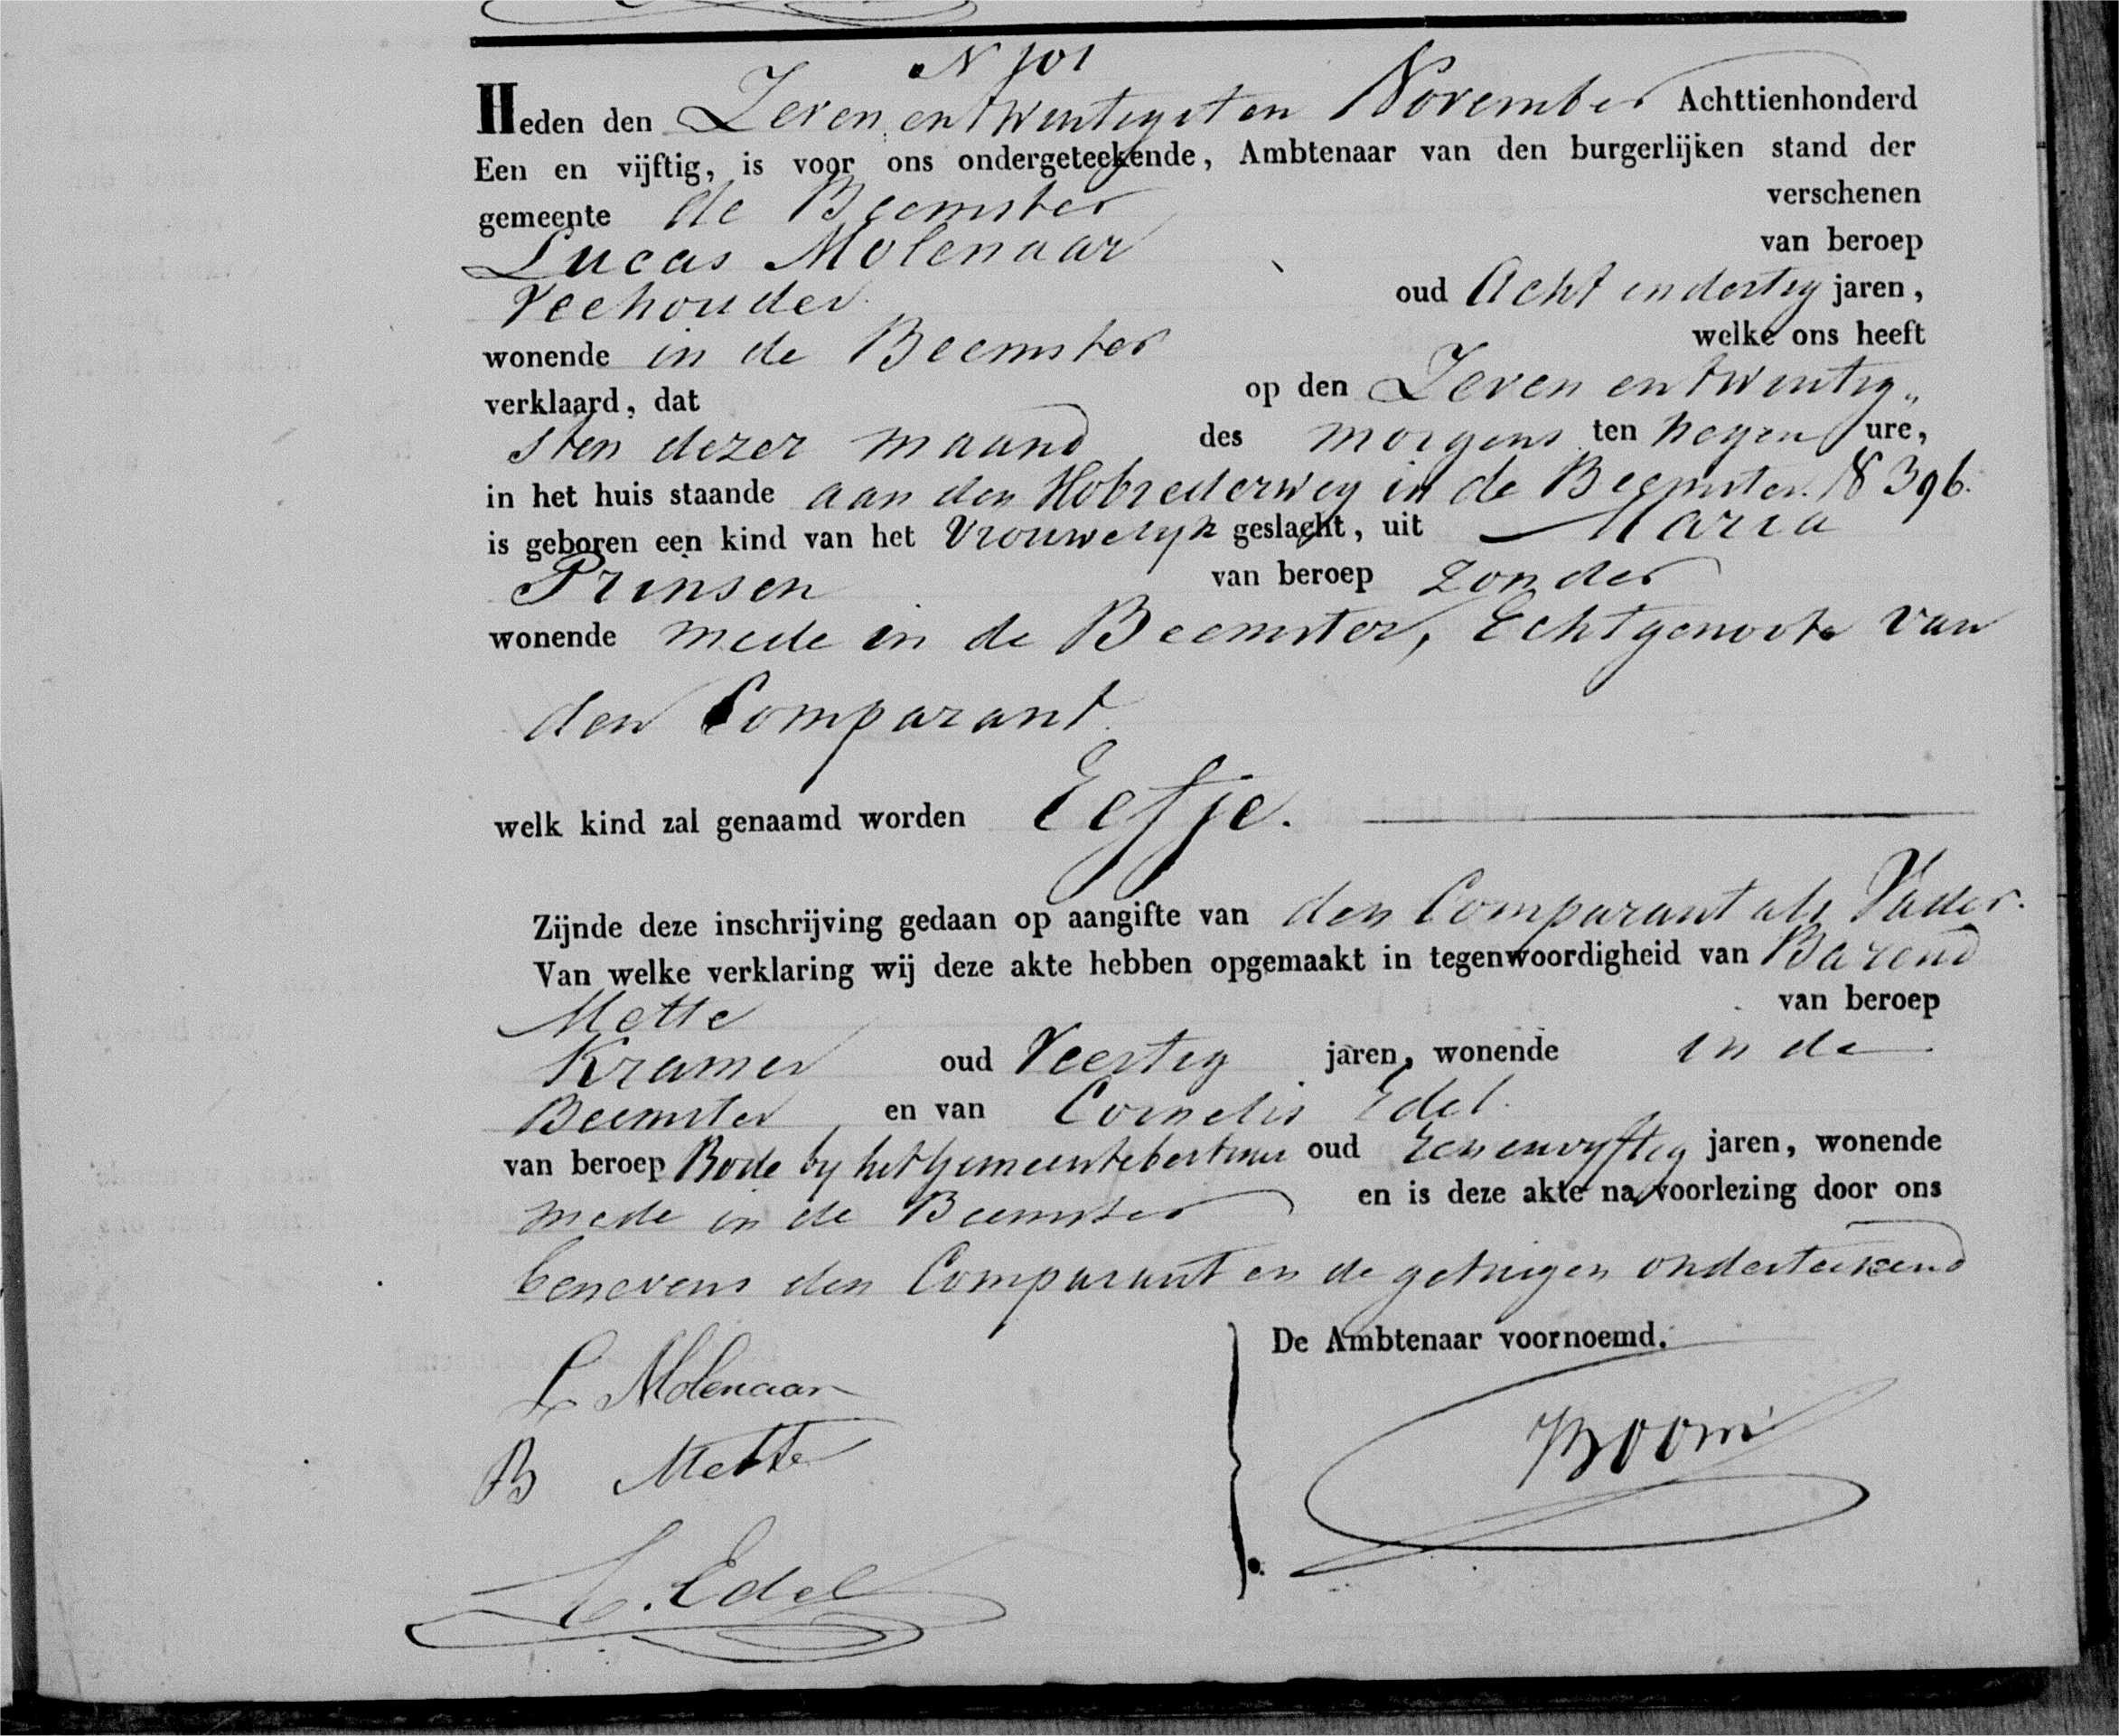 N 101
Heden den Zeven en twintigsten November Achttienhonderd
Een en vijftig, is voor ons ondergeteekende, Ambtenaar van den burgerlijken stand der
gemeente de Beemster verschenen
Lucas Molenaar van beroep
Veehouder oud Acht en dertig jaren,
wonende in de Beemster welke ons heeft
verklaard, dat op den Zeven en twintig„
sten dezer maand des morgens ten negen ure,
in het huis staande aan den Hobrederweg in de Beemster. N 396.
is geboren een kind van het Vrouwelyk geslacht, uit Maria
Prinsen van beroep zonder
wonende mede in de Beemster, Echtgenoote van
den Comparant
welk kind zal genaamd worden Eefje.
Zijnde deze inschrijving gedaan op aangifte van den Comparant als Vader.
Van welke verklaring wij deze akte hebben opgemaakt in tegenwoordigheid van Barend
Mette van beroep
Kramer oud Veertig jaren, wonende in de
Beemster en van Cornelis Edel.
van beroep Bode by het Gemeentebestuur oud Een en vyftig jaren, wonende
mede in de Beemster en is deze akte na voorlezing door ons
benevens den Comparant en de getuigen onderteekend
De Ambtenaar voornoemd.
L Molenaar
Boom
B Mette
C. Edel